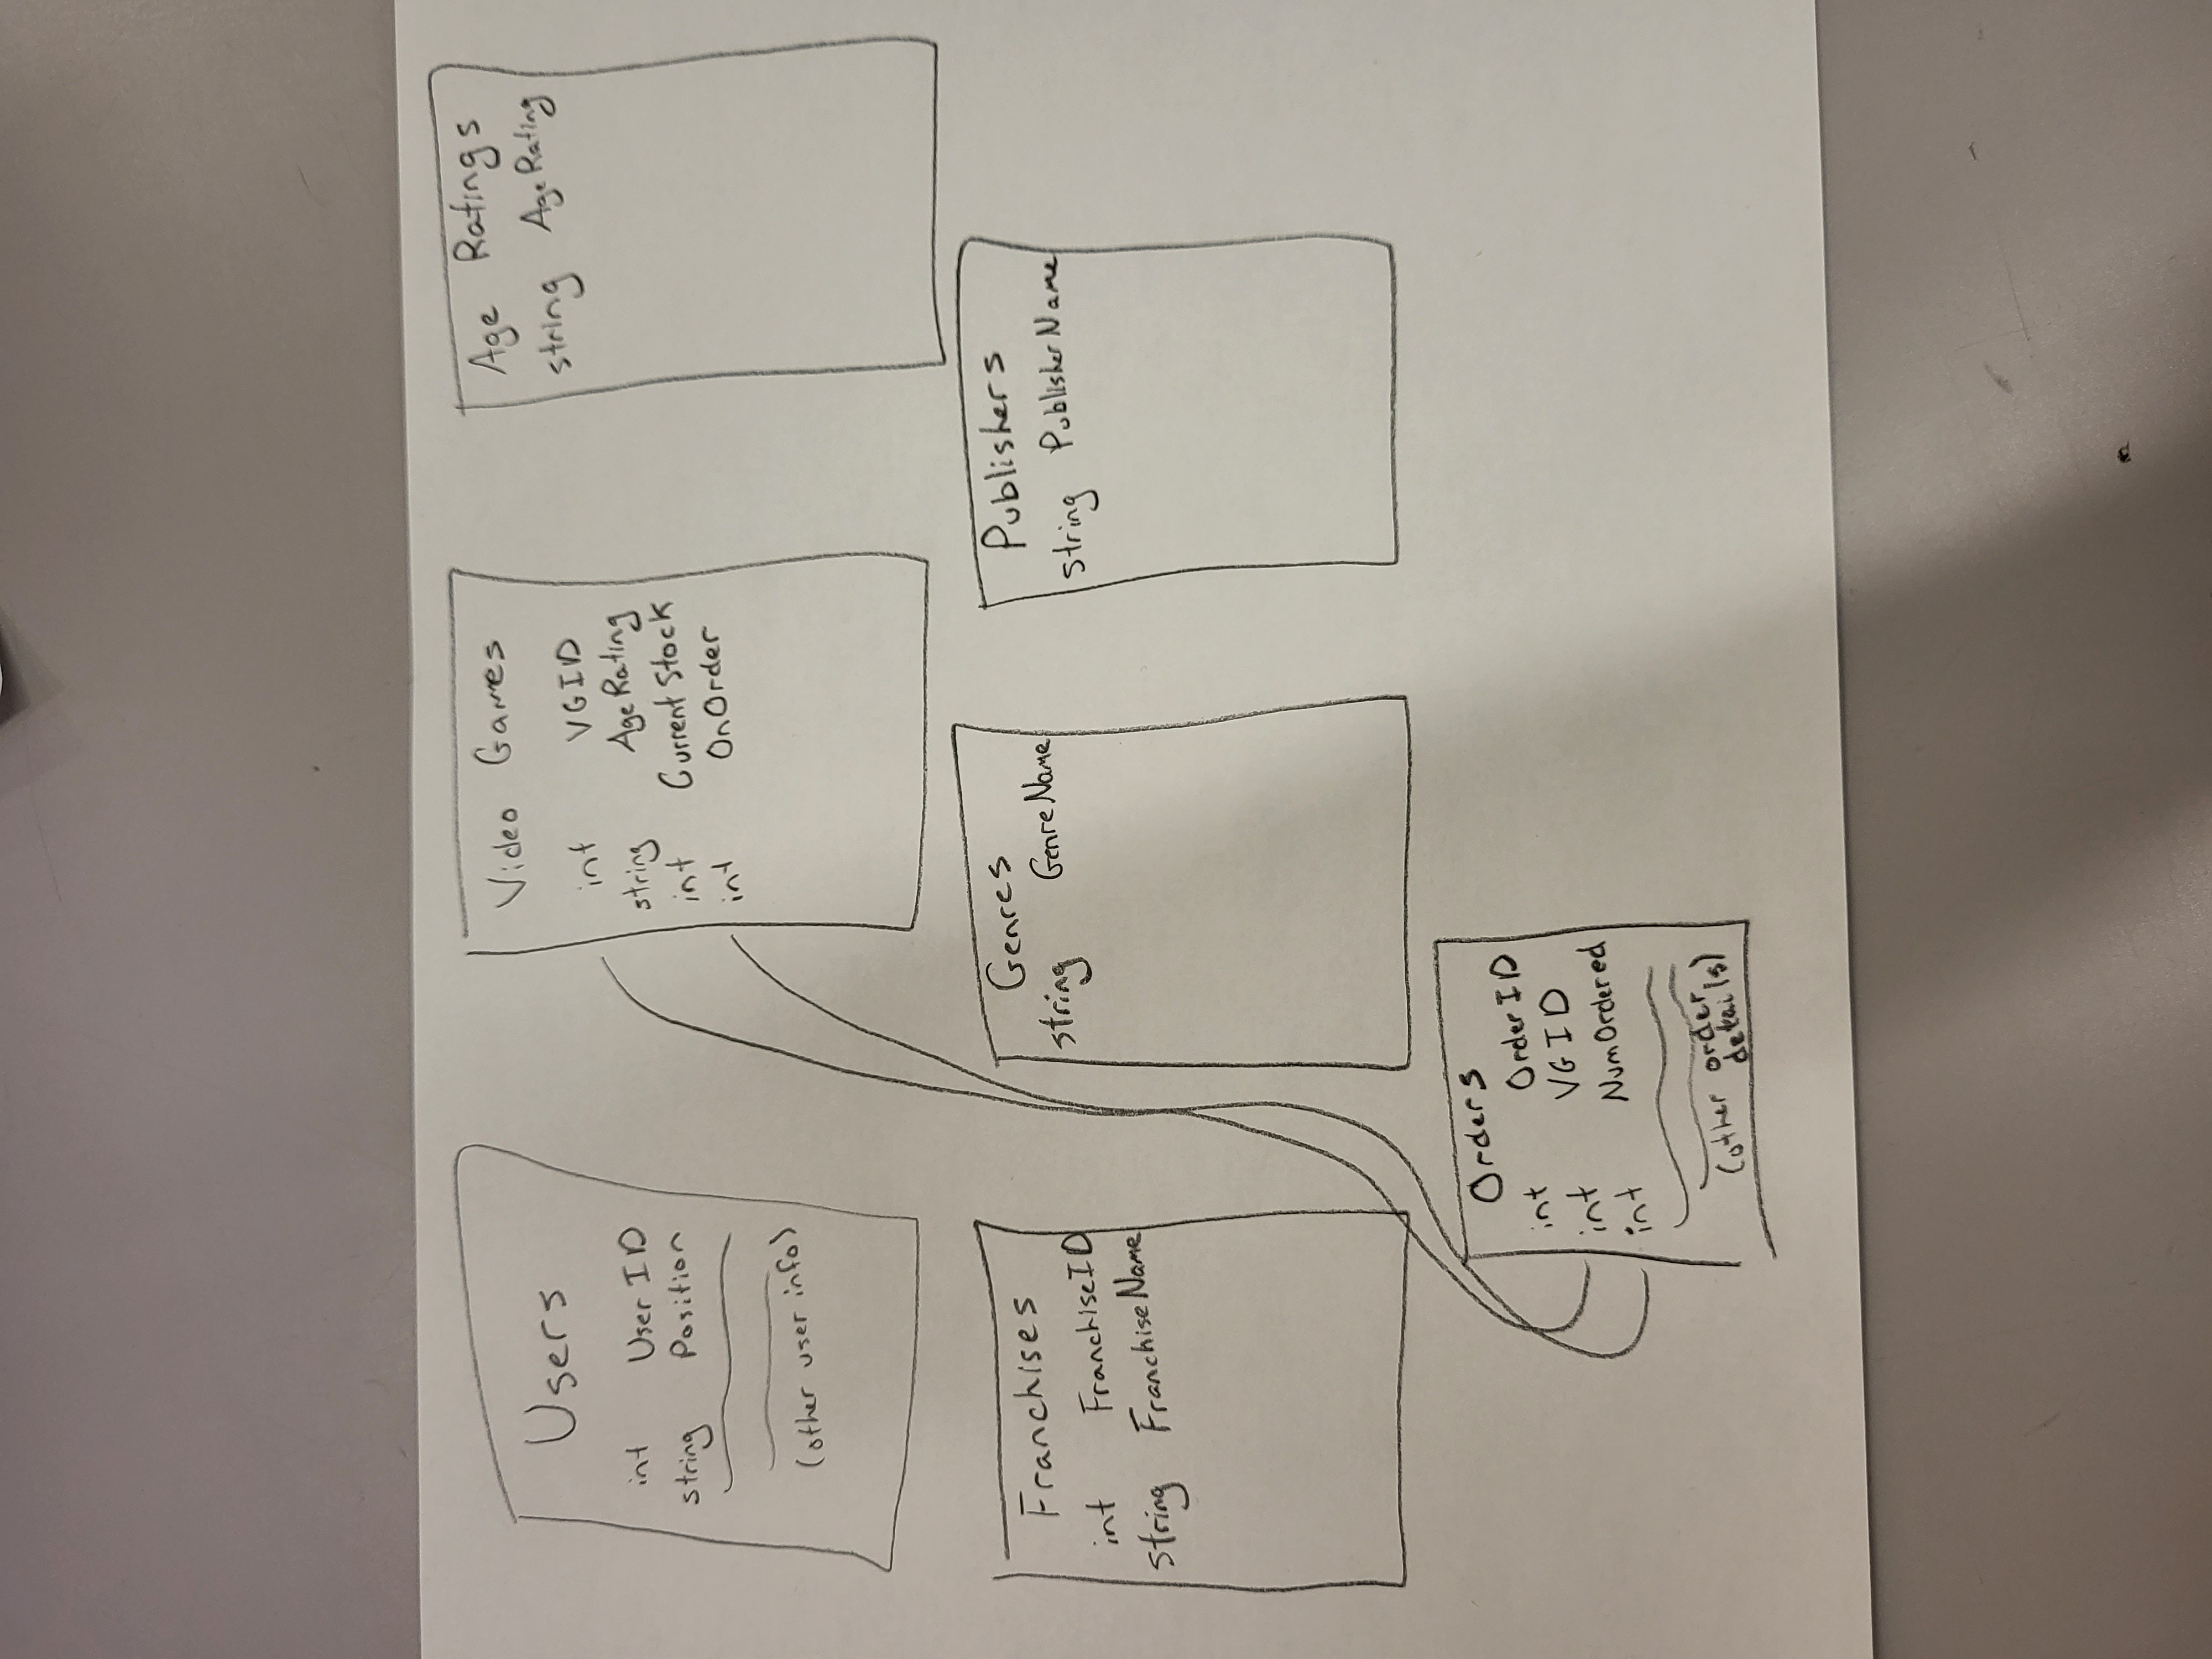 Users
int UserID
string Position
(other user info)
Video Games
int VGID
string AgeRating
int CurrentStock
int OnOrder
Age Ratings
string AgeRating
Franchises
int FranchiseID
string FranchiseName
Genres
string GenreName
Publishers
string PublisherName
Orders
int OrderID
int VGID
int NumOrdered
(other order
details)